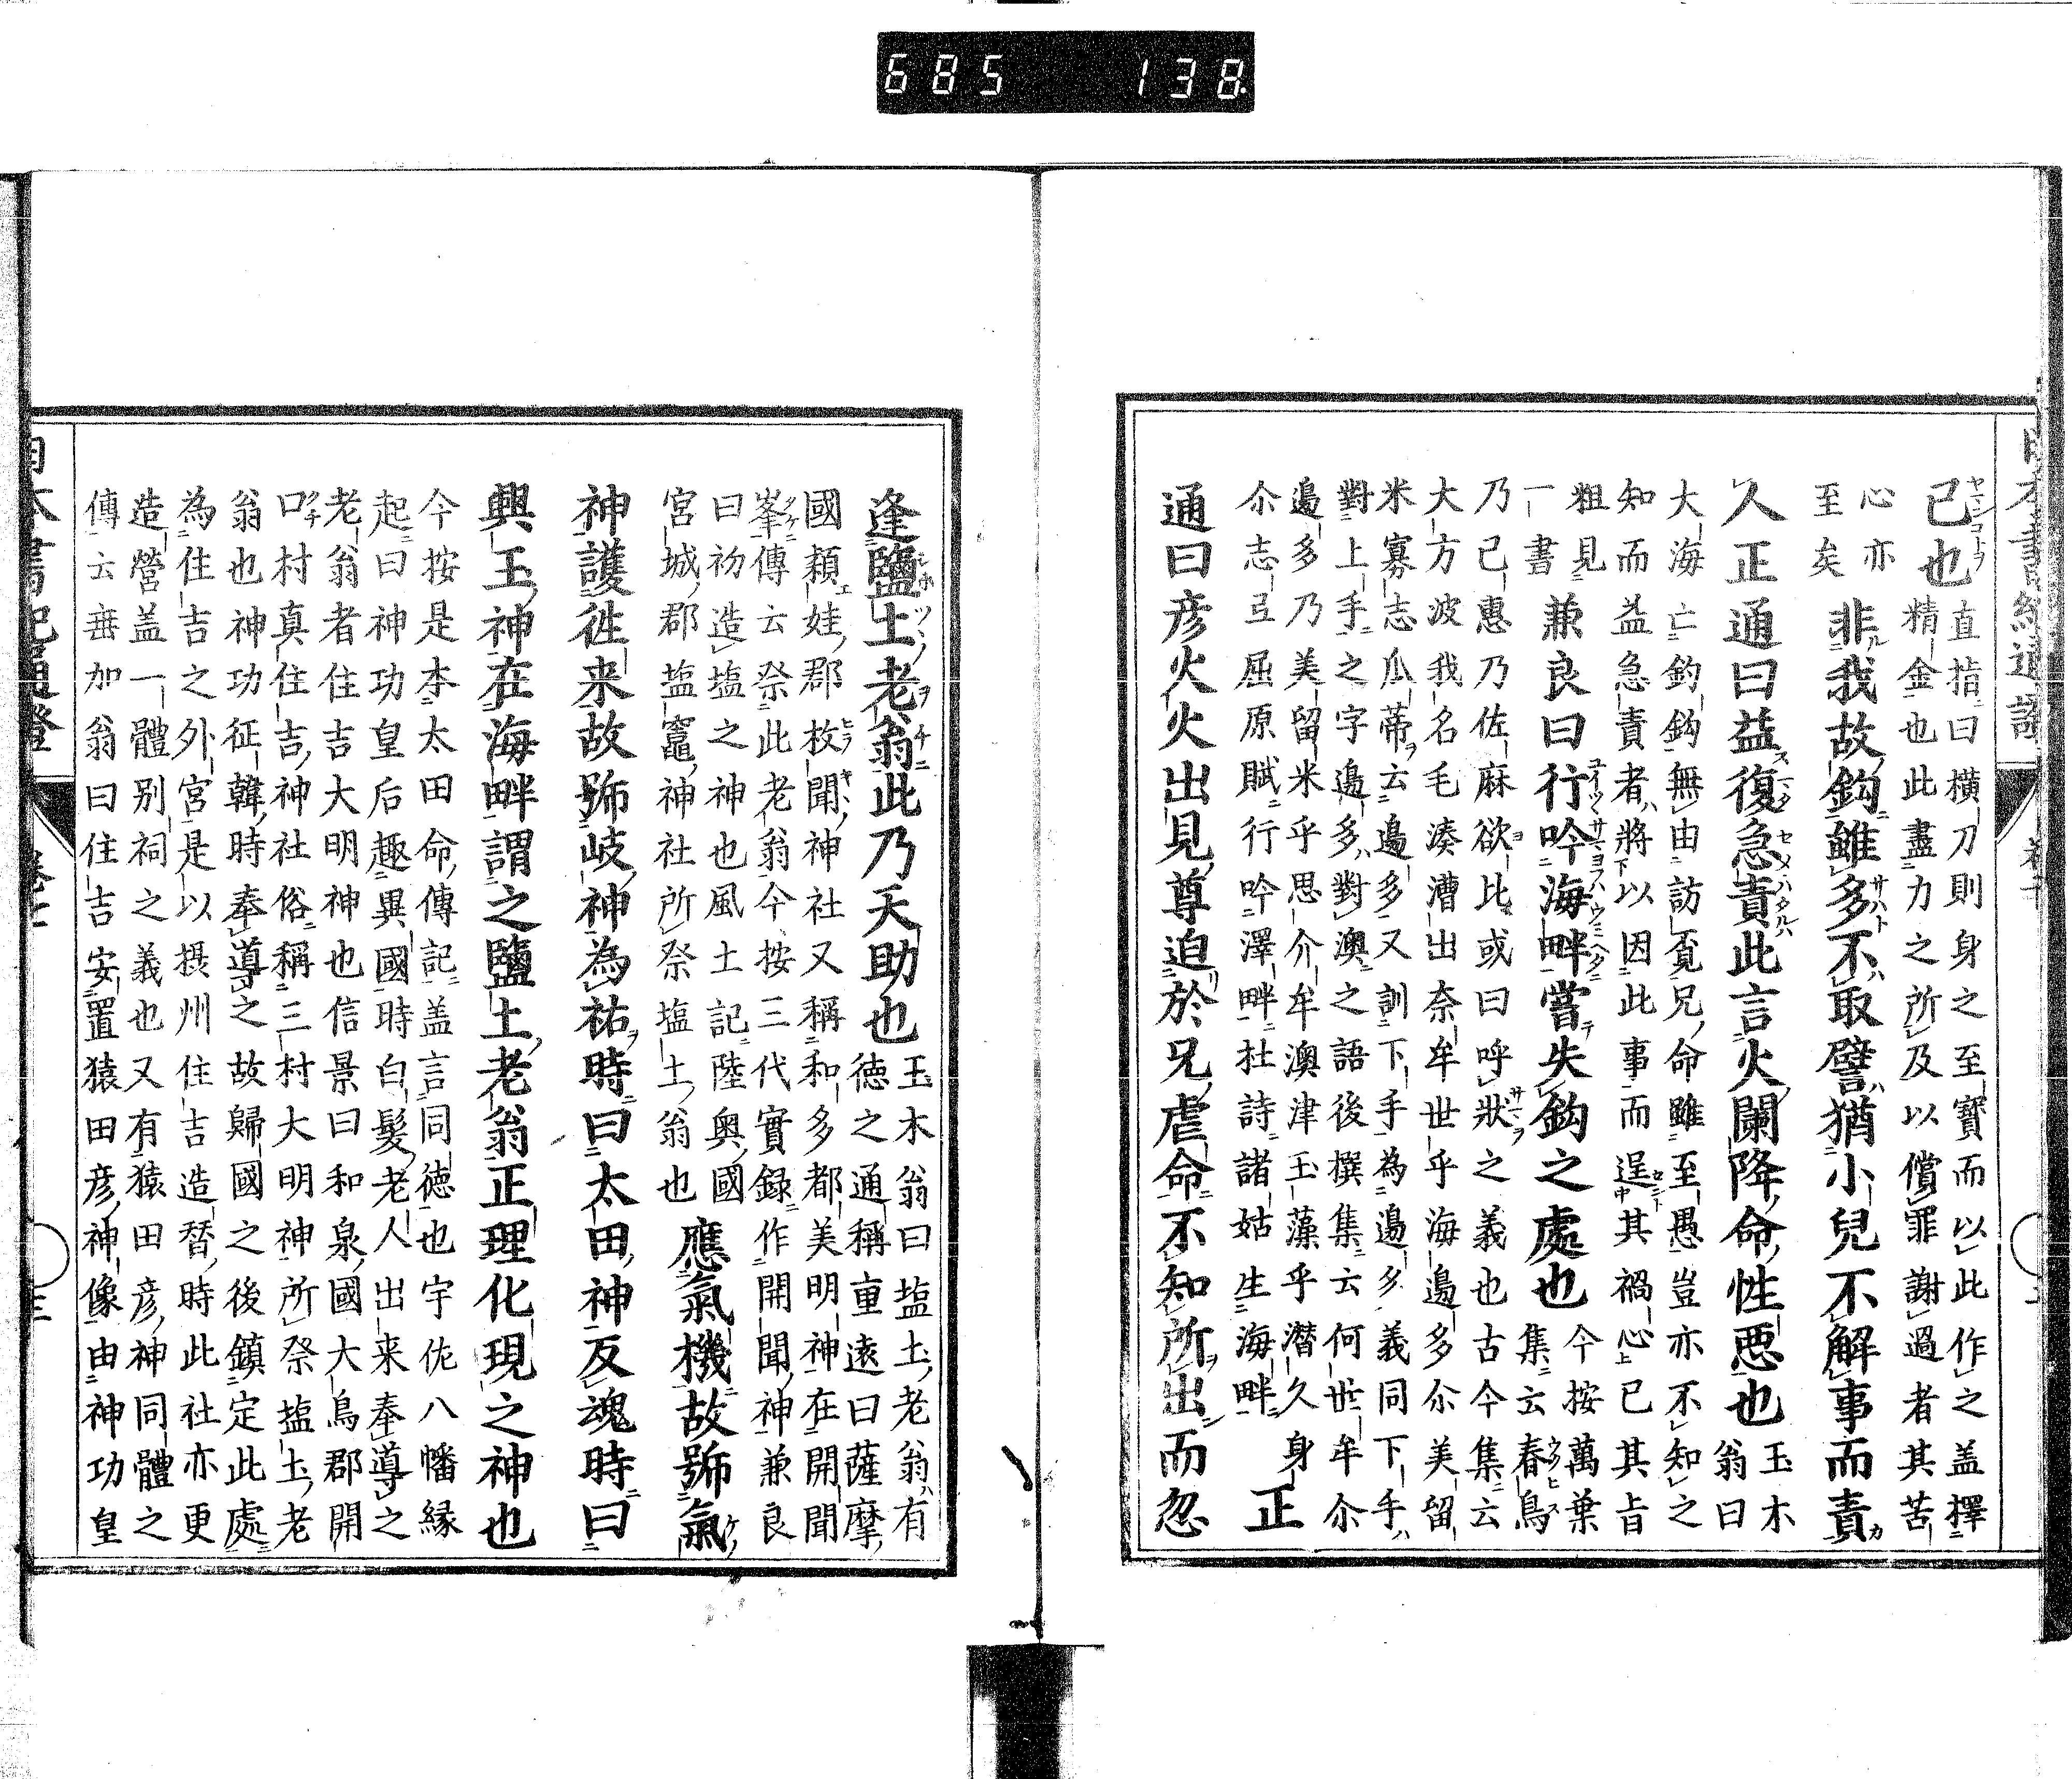 685 138
已也 直指曰橫刀則身之至寳而以此作之盖擇
精金也此盡力之所及以償罪謝過者其苦
心亦
至矣 非我故鈎雖多不取譬猶小兒不解事而責
久正通曰益復急責此言火闌降命性悪也 玉木
翁曰
大海亡釣鈎無由訪覔兄命雖至愚豈亦不知之
知而益急責者將以因此事而逞其禍心已其旨
粗見
一書 兼良曰行吟海畔嘗失鈎之處也 今按萬葉
集云春鳥
乃己惠乃佐麻欲比或曰呼狀之義也古今集云
大方波我名毛湊漕出奈牟世乎海邉多尒美留
米寡志瓜蒂云邉多又訓下手為邉多義同下手
對上手之字邉多對澳之語後撰集云何世牟尒
邉多乃美留米乎思介牟澳津玉藻乎潛久身
尒志弖屈原賦行吟澤畔杜詩諸姑生海畔 正
通曰彦火火出見尊迫於兄虐命不知所出而忽
逢鹽土老翁此乃天助也 玉木翁曰塩土老翁有
徳之通稱重遠曰薩摩
國頴娃郡枚聞神社又稱和多都美明神在開聞
峯傳云祭此老翁今按三代實録作開聞神兼良
曰初造塩之神也風土記陸奥國
宮城郡塩竈神社所祭塩土翁也 應氣機故號氣
神護徃来故號岐神為祐時曰太田神反魂時曰
興玉神在海畔謂之鹽土老翁正理化現之神也
今按是本太田命傳記盖言同徳也宇佐八幡縁
起曰神功皇后趣異國時白髮老人出来奉導之
老翁者住吉大明神也信景曰和泉國大鳥郡開
口村真住吉神社俗稱三村大明神所祭塩土老
翁也神功征韓時奉導之故歸國之後鎮定此處
為住吉之外宮是以摂州住吉造替時此社亦更
造營盖一體别祠之義也又有猿田彦神同體之
傳云毎加翁曰住吉安置猿田彦神像由神功皇